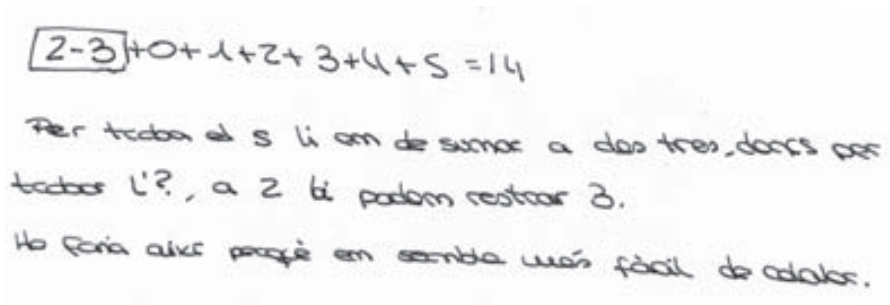 2-3+0+1+2+3+4+5 =14
Per trobar el 5 li em de sumar a dos tres, doncs per
trobar l'?, a 2 li podem restar 3.
Ho faria aixi perqè em sembla més fàcil de calular.